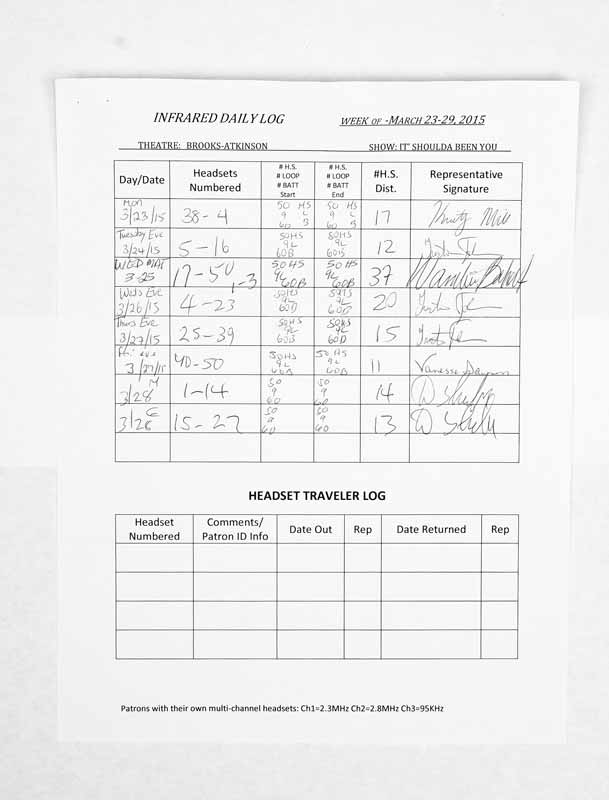 INFRARED DAILY LOG WEEK OF -MARCH 23-29, 2015
THEATRE: BROOKS-ATKINSON SHOW: IT' SHOULDA BEEN YOU
Day/Date Headsets Numbered # H.S. # LOOP # BATT Start # H.S. # LOOP # BATT End #H.S. Dist. Representative Signature
Mon 3/23/15 38-4 50 HS 9 L 60 B 50 HS 9 L 60 B 17
Tuesday Eve 3/24/15 5-16 50HS 9L 60B 50HS 9L 60B 12
WED MAT 3-25 17-50, 1-3 50HS 9L 60B 50HS 9L 60B 37
Weds Eve 3/26/15 4-23 50HS 9L 60B 50HS 9L 60B 20
Thurs Eve 3/27/15 25-39 50HS 9L 60B 50HS 9L 60B 15
Fri eve 3/27/15 40-50 50HS 9L 60B 50HS 9L 60B 11 Vanessa Dawson
3/28 M 1-14 50 9 60 50 9 60 14
3/28 E 15-27 50 9 60 50 9 60 13
HEADSET TRAVELER LOG
Headset Numbered Comments/ Patron ID Info Date Out Rep Date Returned Rep
Patrons with their own multi-channel headsets: Ch1=2.3MHz Ch2=2.8MHz Ch3=95KHz